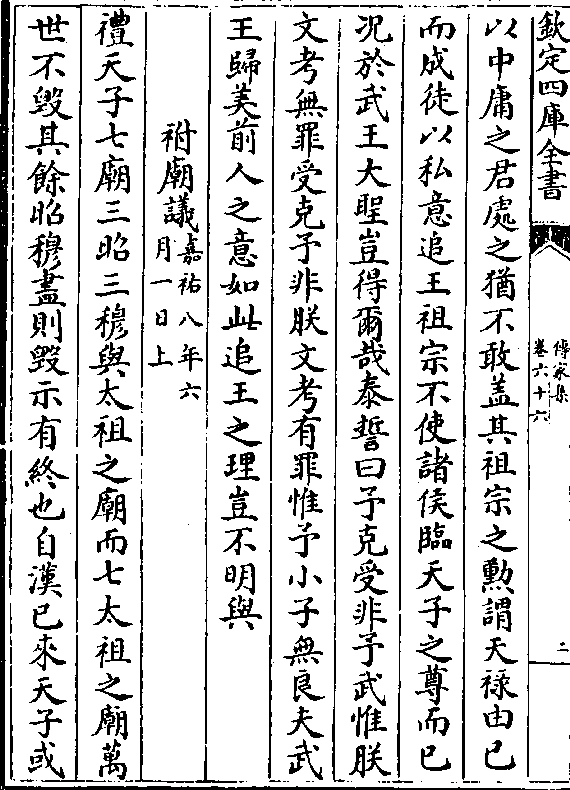 欽定四庫全書
傳家集
卷六十六
二
以中庸之君處之猶不敢盖其祖宗之勲謂天禄由已
而成徒以私意追王祖宗不使諸侯臨天子之尊而已
况於武王大聖豈得爾哉泰誓曰予克受非予武惟朕
文考無罪受克予非朕文考有罪惟予小子無良夫武
王歸美前人之意如此追王之理豈不明與
祔廟議嘉祐八年六
月一日上
禮天子七廟三昭三穆與太祖之廟而七太祖之廟萬
世不毁其餘昭穆盡則毁示有終也自漢已來天子或